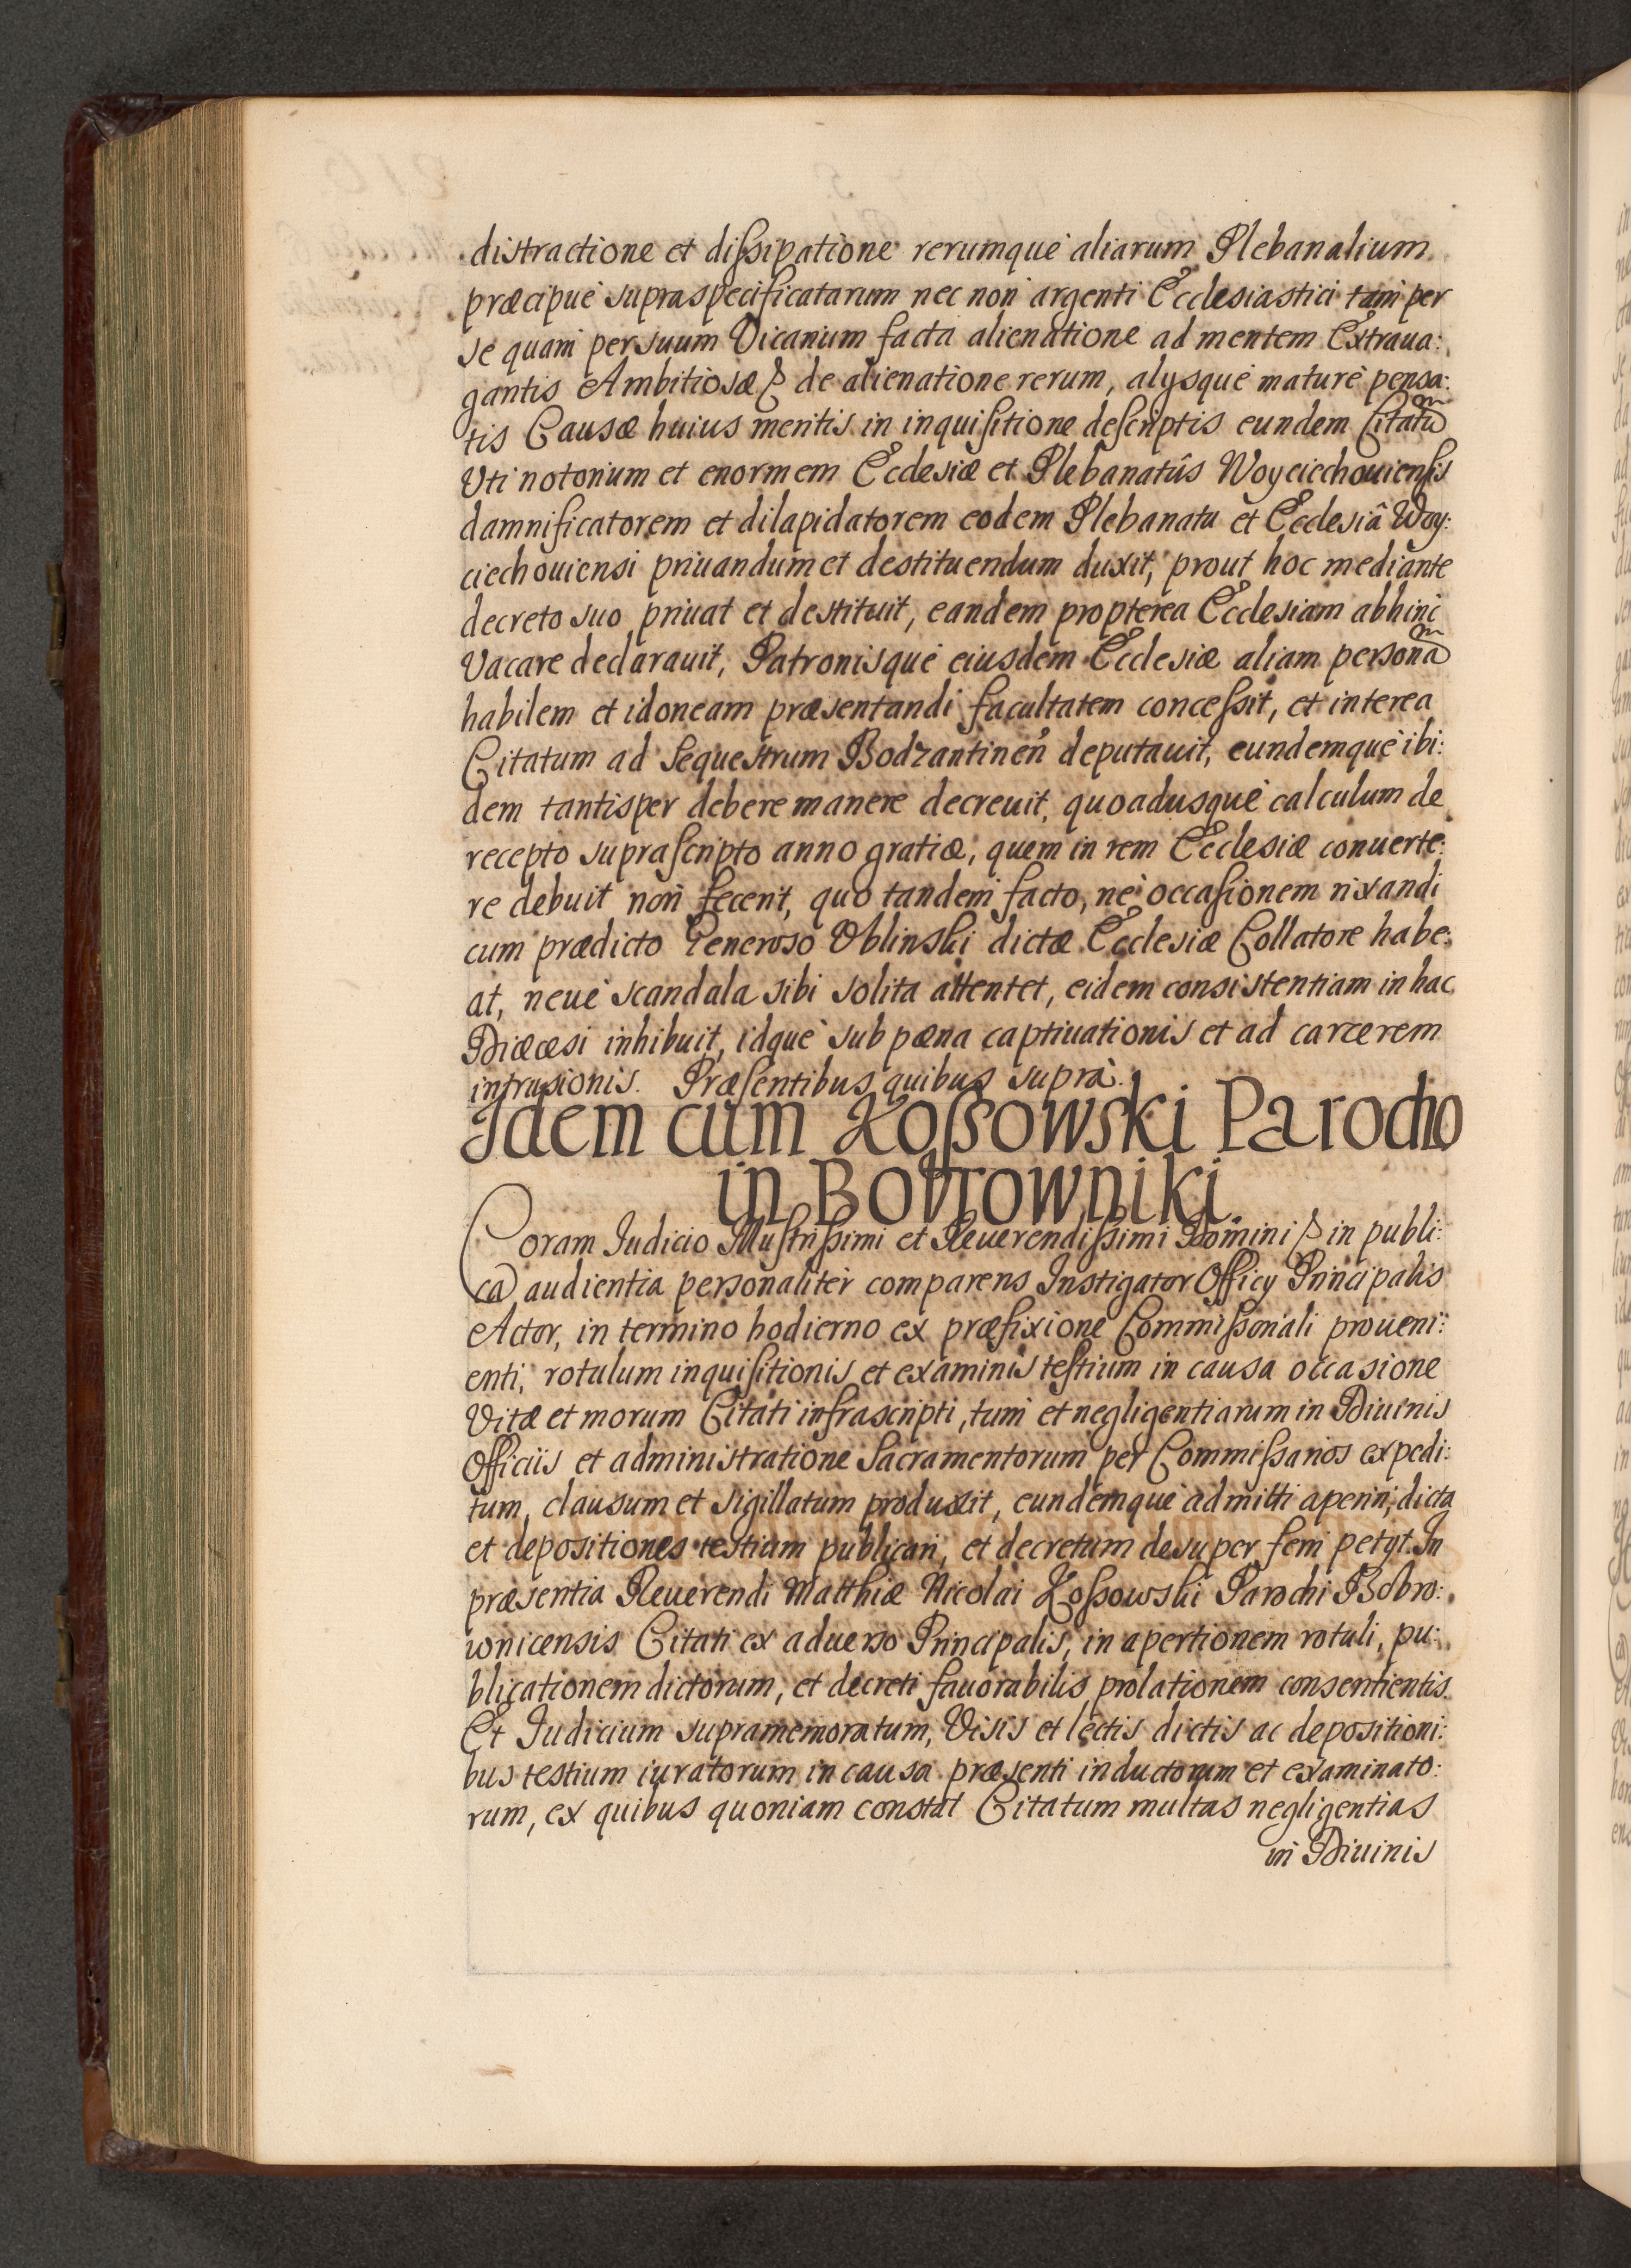 distractione et dißipatione rerumque aliarum Plebanalium
præcipuè supraspecificatarum nec non argenti Ecclesiastici tam per
se quam per suum Vicarium facta alienatione ad mentem Extraua:
gantis Ambitiosæ de alienatione rerum, alysque maturè pensa:
tis Causæ huius meritis in inquisitione descriptis eundem Citatum
Vti notorium et enormem Ecclesiæ et Plebanatûs Woyciechouiensis
damnificatorem et dilapidatorem eodem Plebanatu et Ecclesiâ Woy:
ciechouiensi priuandum et destituendum duxit, prout hoc mediante
decreto suo priuat et destituit, eandem propterea Ecclesiam abhinc
Vacare declarauit, Patronisque eiusdem Ecclesiæ aliam personam
habilem et idoneam præsentandi facultatem conceßit, et interea
Citatum ad Sequestrum Bodzantinen deputauit, eundemque ibi:
dem tantisper debere manere decreuit, quoadusque calculum de
recepto suprascripto anno gratiæ, quem in rem Ecclesiæ conuerte:
re debuit non fecerit, quo tandem facto, ne occasionem rixandi
cum prædicto Generoso Oblinski dictæ Ecclesiæ Collatore habe:
at, neuè scandala sibi solita attentet, eidem consistentiam in hac
Diœcesi inhibuit, idque sub pæna captiuationis et ad carcerem
intrusionis. Præsentibus quibus suprà.
Idem cum Koßowski Parocho
in Bobrowniki
Coram Iudicio Illustrißimi et Reuerendißimi Domini in publi:
ca audientia personaliter comparens Instigator Officy Principalis
Actor, in termino hodierno ex præfixione Commißoriali proueni:
enti, rotulum inquisitionis et examinis testium in causa occasione
Vitæ et morum Citati infrascripti, tum et negligentiarum in Diuinis
Officiis et administratione Sacramentorum per Commißarios expedi:
tum, clausum et sigillatum produxit, eundemque admitti aperiri, dicta
et depositiones testium publicari, et decretum desuper ferri petyt. In
præsentia Reuerendi Matthiæ Nicolai Koßowski Parochi Bobro:
wnicensis Citati ex aduerso Principalis, in apertionem rotuli, pu:
blicationem dictorum, et decreti fauorabilis prolationem consentientis.
Et Iudicium supramemoratum, Visis et lectis dictis ac depositioni:
bus testium iuratorum in causa præsenti inductorum et examinato:
rum, ex quibus quoniam constat Citatum multas negligentias
in Diuinis